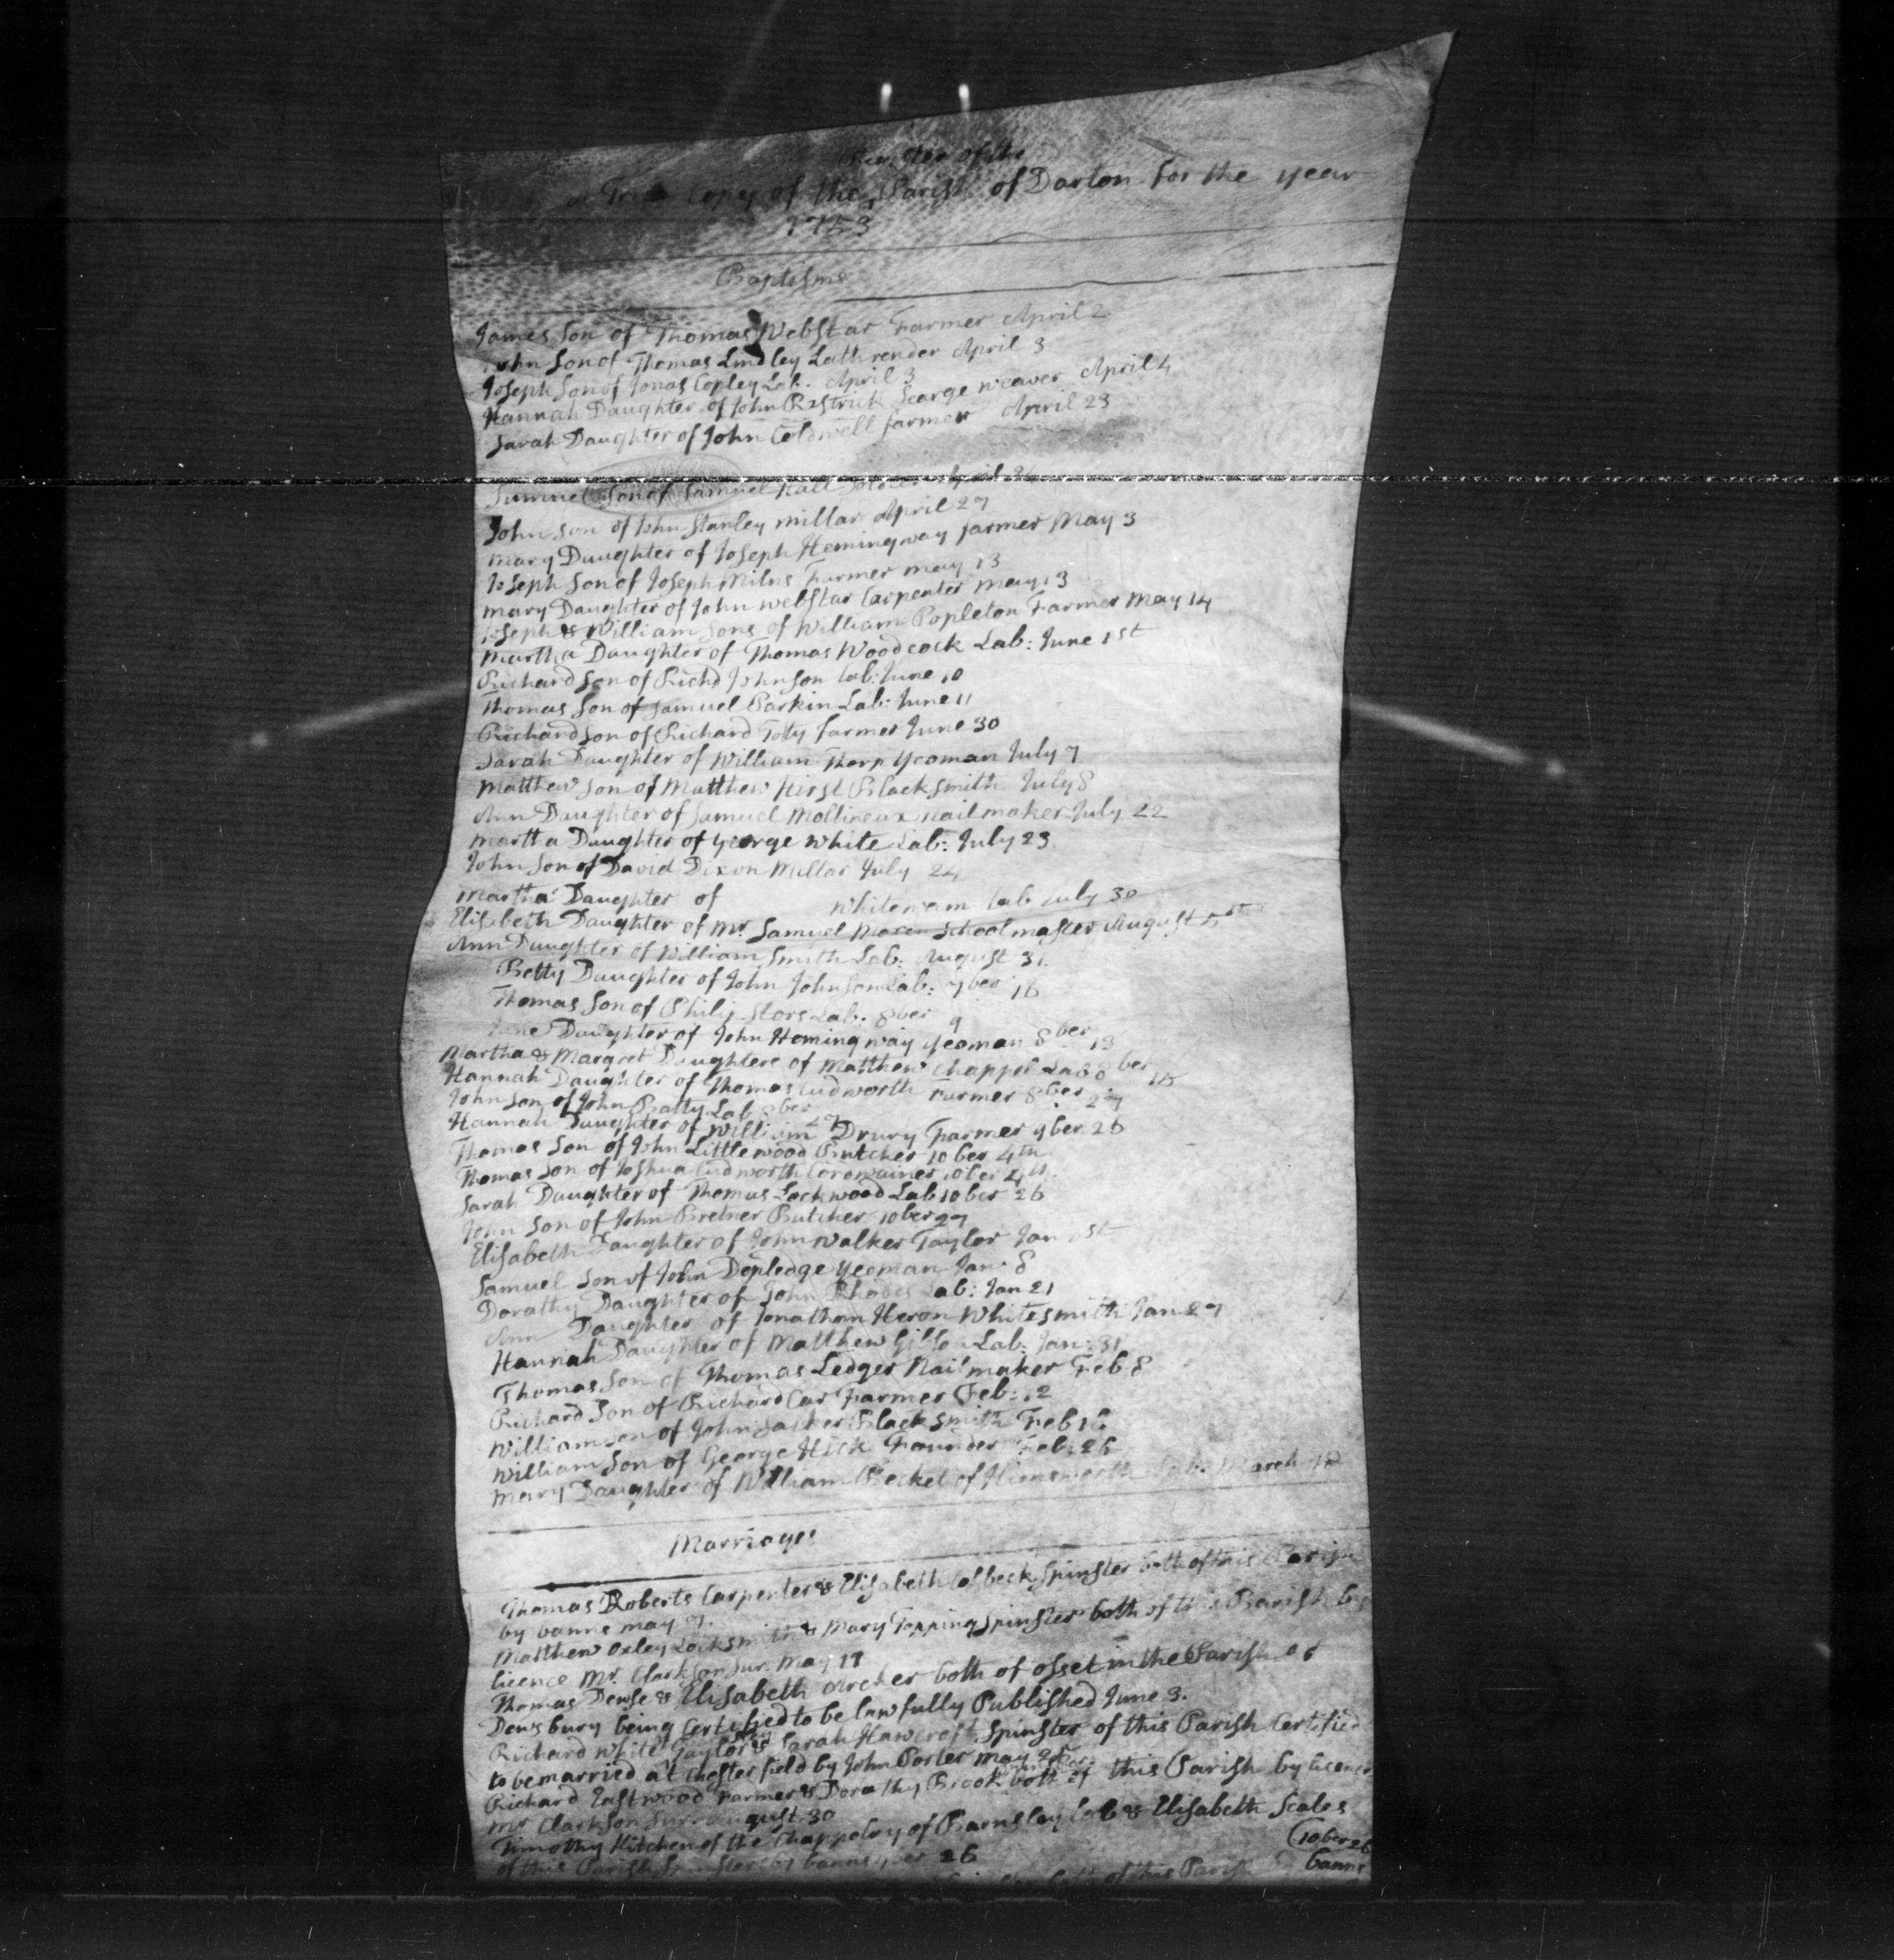 Register of the
a True Copy of the Parish of Darton for the year
1753
Baptisms
James Son of Thomas Webstar Farmer April 2
John Son of Thomas Lindley Lathrender April 3
Joseph Son of Jonas Copley Lab: April 3
Hannah Daughter of John Rastrick Searge weaver April 4
Sarah Daughter of John Coldwell farmer April 23
Samuel Son of Samuel Hall April
John Son of John Stanley millar April 27
mary Daughter of Joseph Hemingway farmer May 3
Joseph Son of Joseph Milns Farmer may 13
mary Daughter of John webstar Carpenter may 13
Joseph & William Sons of William Popleton Farmer May 14
martha Daughter of Thomas Woodcock Lab: June 1st
Richard Son of Richd Johnson Lab: June 10
Thomas Son of Samuel Parkin Lab: June 11
Richard Son of Richard Totty farmer June 30
Sarah Daughter of William Thorp Yeoman July 7
Matthew Son of Matthew Hirst Blacksmith July 8
Ann Daughter of Samuel Mollineux nailmaker July 22
martha Daughter of George white Lab: July 23
John Son of David Dixon Millar July 24
martha Daughter of Whitenam Lab July 30
Elisabeth Daughter of Mr. Samuel School master August
Ann Daughter of William Smith Lab: August 31
Betty Daughter of John Johnson Lab: 7ber 18
Thomas Son of Philip Stors Lab: 8ber 9
Jane Daughter of John Hemingway yeoman 8ber 13
Martha & Margret Daughters of Matthew Chappel Lab 8ber 15
Hannah Daughter of Thomas Cudworth Farmer 8ber 27
John Son of John Batty Lab 8ber 27
Hannah Daughter of William Drury Farmer 9ber 26
Thomas Son of John Littlewood Butcher 10ber 4th
Thomas Son of Joshua Cudworth Cordwainer 10ber 4th
Sarah Daughter of Thomas Lockwood Lab 10ber 26
John Son of John Bretner Butcher 10ber 27
Elisabeth Daughter of John Walker Taylor Jan 1st
Samuel Son of John Depledge Yeoman Jan: 8
Dorathy Daughter of John Rhodes Lab: Jan 21
Ann Daughter of Jonathan Heron Whitesmith Jan 27
Hannah Daughter of Matthew Gibson Lab: Jan: 31
Thomas Son of Thomas Ledger Nailmaker Feb 8
Richard Son of Richard Car Farmer Feb: 12
William Son of John Blacksmith Feb 16
William Son of George Hick Founder Feb: 26
mary Daughter of William Becket of Hemsworth Lab: March 12
Marriages
Thomas Roberts Carpenter & Elisabeth Colbeck Spinster both of this Parish
by banns may 7.
Matthew Oxley Locksmith & Mary Topping Spinster both of this Parish by
licence Mr. Clarkson Sur. May 17
Thomas Dewse & Elisabeth Archer both of Osset in the Parish of
Dewsbury being Certified to be lawfully Published June 3.
Richard white Taylor & Sarah Hawcroft Spinster of this Parish Certified
to be married at Chesterfield by John Porter may 28
Richard Eastwood Farmer & Dorathy Brook both of this Parish by licence
mr Clarkson Sur: august 30
Timothy Kitchen of the Chappelry of Barnsley Lab & Elisabeth Scales
of this Parish Spinster by banns 26
both of this Parish by banns
(10ber 26